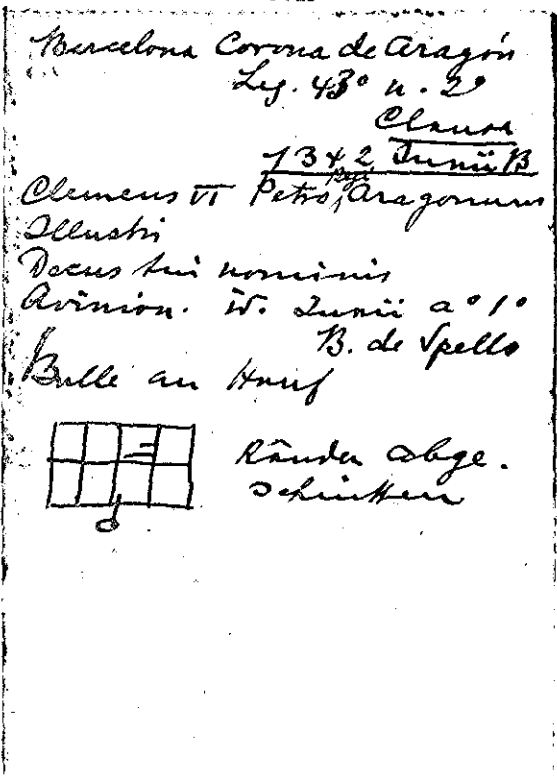 Barcelona Corona de Aragón
Leg. 43º n. 2º
Clausa
1342 Junii 13
Clemens VI Petro Regi Aragonum
Illustri
Decus tui nominis
Avinion. id. Junii aº 1º
B. de Spello
Bulle an Hanf
Ränder abge-
schnitten